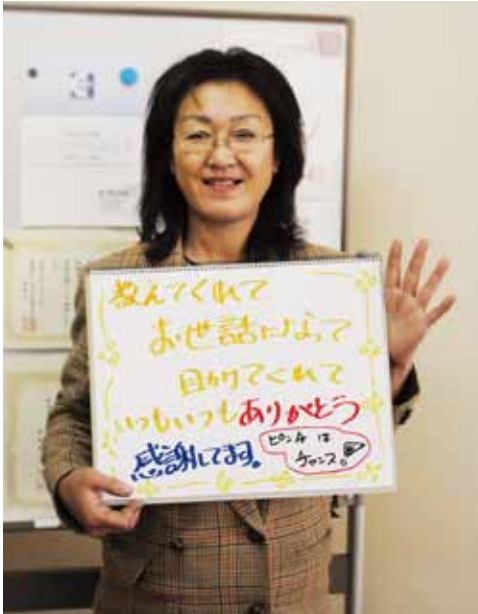 教えてくれて
お世話になって
目かけてくれて
いつもいつもありがとう
感謝してます。
ピンチは
チャンス。